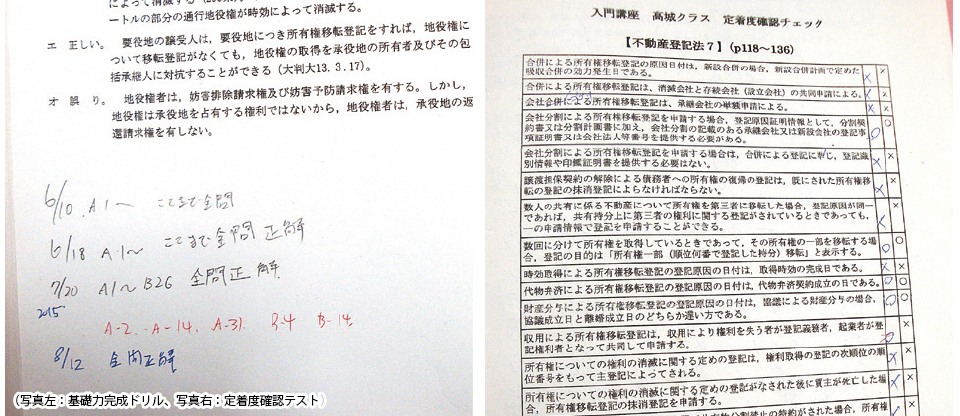 によって消滅する
ートルの部分の通行地役権が時効によって消滅する。
エ 正しい。 要役地の譲受人は,要役地につき所有権移転登記をすれば,地役権に
ついて移転登記がなくても,地役権の取得を承役地の所有者及びその包
括承継人に対抗することができる(大判大13.3.17)。
オ 誤り。 地役権者は,妨害排除請求権及び妨害予防請求権を有する。しかし,
地役権は承役地を占有する権利ではないから,地役権者は,承役地の返
還請求権を有しない。
6/10 A1〜 ここまで全問
6/18 A-1〜 ここまで全問正解
7/20 A1〜B26 全問正解
2015
A-2. A-14. A-31. B-4 B-14.
8/12 全問正解
(写真左:基礎力完成ドリル、写真右:定着度確認テスト)
入門講座 高城クラス 定着度確認チェック
【不動産登記法7】(p118〜136)
合併による所有権移転登記の原因日付は,新設合併の場合,新設合併計画で定めた
吸収合併の効力発生日である。 × ×
合併による所有権移転登記は,消滅会社と存続会社(設立会社)の共同申請による。 × ×
会社合併による所有権移転登記は,承継会社の単独申請による。 × ×
会社分割による所有権移転登記を申請する場合,登記原因証明情報として,分割契
約書又は分割計画書に加え,会社分割の記載のある承継会社又は新設会社の登記事
項証明書又は会社法人等番号を提供する必要がある。 ○ ○
会社分割による所有権移転登記を申請する場合は,合併による登記に準じ,登記識
別情報や印鑑証明書を提供する必要はない。 × ×
譲渡担保契約の解除による債務者への所有権の復帰の登記は,既にされた所有権移
転の登記の抹消登記によらなければならない。 × ×
数人の共有に係る不動産について所有権を第三者に移転した場合,登記原因が同一
であれば,共有持分上に第三者の権利に関する登記がされているときであっても,
一の申請情報で登記を申請することができる。 × ×
数回に分けて所有権を取得しているときであって,その所有権の一部を移転する場
合,登記の目的は「所有権一部(順位何番で登記した持分)移転」と表示する。 ○ ○
時効取得による所有権移転登記の登記原因の日付は,取得時効の完成日である。 × ×
代物弁済による所有権移転登記の登記原因の日付は,代物弁済契約成立の日である。 ○ ○
財産分与による所有権移転登記の登記原因の日付は,協議による財産分与の場合,
協議成立日と離婚成立日のどちらか遅い方である。 ○ ○
収用による所有権移転登記は,収用により権利を失う者が登記義務者,起業者が登
記権利者となって共同して申請する。 ×
所有権についての権利の消滅に関する定めの登記は,権利取得の登記の次順位の順
位番号をもって主登記によってされる。 × ×
所有権についての権利の消滅に関する定めの登記がなされた後に買主が死亡した場
合,所有権移転登記の抹消登記を申請する。 × ×
の特約がされた場合,所有権